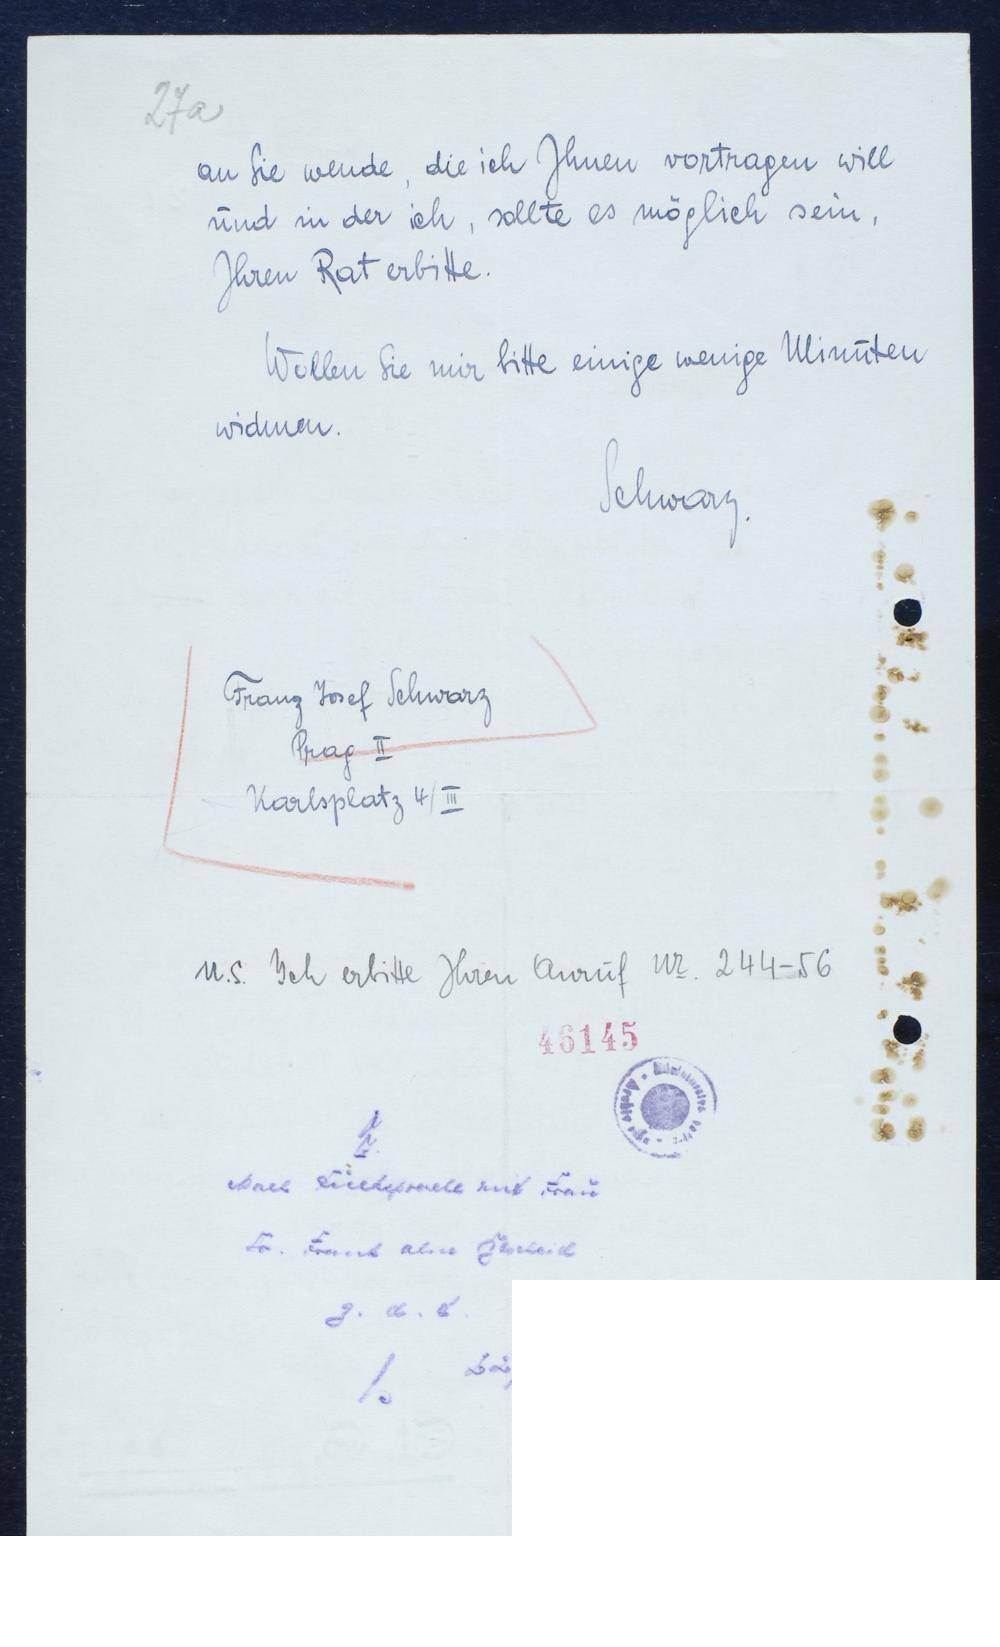 27a
an Sie wende, die ich Ihnen vortragen will
und in der ich, sollte es möglich sein,
Ihren Rat erbitte.
Wollen Sie mir bitte einige wenige Minuten
widmen.
Schwarz.
Franz Josef Schwarz
Prag II
Karlsplatz 4/III
N.S. Ich erbitte Ihren Anruf Nr. 244-56
46145
Nach Rücksprache mit Frau
Dr. Frank ohne Bescheid
z. d. A.